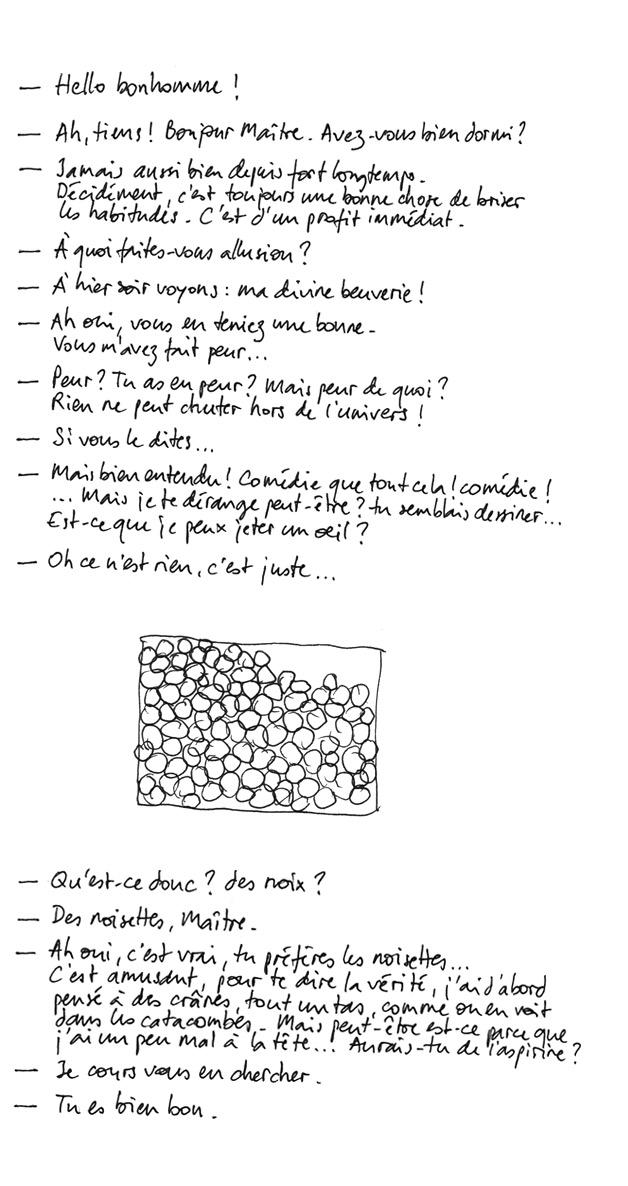 — Hello bonhomme !
— Ah, tiens ! Bonjour Maître. Avez-vous bien dormi ?
— Jamais aussi bien depuis fort longtemps.
Décidément, c'est toujours une bonne chose de briser
les habitudes. C'est d'un profit immédiat.
— À quoi faites-vous allusion ?
— À hier soir voyons : ma divine beuverie !
— Ah oui, vous en teniez une bonne.
Vous m'avez fait peur...
— Peur ? Tu as eu peur ? Mais peur de quoi ?
Rien ne peut chuter hors de l'univers !
— Si vous le dites...
— Mais bien entendu ! Comédie que tout cela ! comédie !
... Mais je te dérange peut-être ? tu semblais dessiner...
Est-ce que je peux jeter un œil ?
— Oh ce n'est rien, c'est juste...
— Qu'est-ce donc ? des noix ?
— Des noisettes, Maître.
— Ah oui, c'est vrai, tu préfères les noisettes...
C'est amusant, pour te dire la vérité, j'ai d'abord
pensé à des crânes, tout un tas, comme on en voit
dans les catacombes. Mais peut-être est-ce parce que
j'ai un peu mal à la tête... Aurais-tu de l'aspirine ?
— Je cours vous en chercher.
— Tu es bien bon.